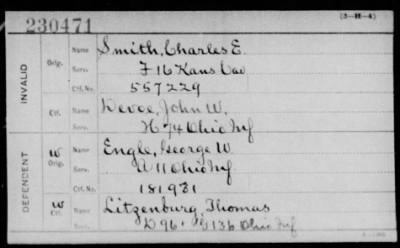 230471
(3-H-4)
INVALID
Orig. Name Smith, Charles E.
Serv. F 16 Kans Cav
Ctf. No. 557229
Ctf. Name Devoe, John W.
H 74 Ohio Inf
DEFENDENT
W Orig. Name Engle, George W
Serv. A 11 Ohio Inf
Ctf. No. 181931
W Ctf. Name Litzenburg, Thomas
D 96 G 136 Ohio Inf